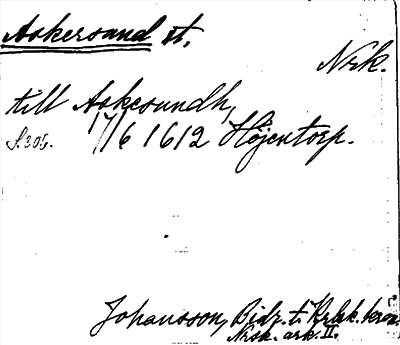 Askersund st.
Nrk.
till Askesundh,
S. 305. 17/6 1612 Höjentorp.
Johansson, Bidr. t. Krlek.
Närk. ark. II.